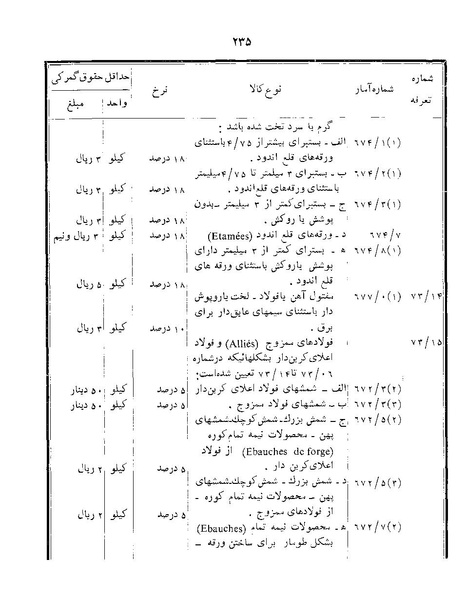 ۲۳۵
شماره تعرفه | شماره آمار | نوع کالا | نرخ | حداقل حقوق گمرکی
واحد | مبلغ
گرم یا سرد تخت شده باشد :
۶۷۴/۱(۱) الف ـ بستبرای بیشتر از ۴/۷۵ باستثنای
ورقه‌های قلع اندود . ۱۸ درصد کیلو ۳ ریال
۶۷۴/۲(۱) ب ـ بستبرای ۳ میلمتر تا ۴/۷۵ میلیمتر
باستثنای ورقه های قلع‌اندود . ۱۸ درصد کیلو ۳ ریال
۶۷۴/۳(۱) ج ـ بستبرای کمتر از ۳ میلیمتر ـ بدون
پوشش یا روکش . ۱۸ درصد کیلو ۳ ریال
۶۷۴/۷ د ـ ورقه‌های قلع اندود (Etamées) ۱۸ درصد کیلو ۳ ریال ونیم
۶۷۴/۸(۱) ه ـ بستبرای کمتر از ۳ میلیمتر دارای
پوشش یاروکش باستثنای ورقه های
قلع اندود . ۱۸ درصد کیلو ۵ ریال
۷۳/۱۴ ۶۷۷/۰(۱) مفتول آهن یافولاد ـ لخت یاروپوش
دار باستثنای سیمهای عایق‌دار برای
برق . ۱۰ درصد کیلو ۳ ریال
۷۳/۱۵ فولادهای ممزوج (Alliés) و فولاد
اعلای کربن‌دار بشکلهائیکه درشماره
۷۳/۰۶ تا ۷۳/۱۴ تعیین شده‌است:
۶۷۲/۳(۲) الف ـ شمشهای فولاد اعلای کربن‌دار ۵ درصد کیلو ۵۰ دینار
۶۷۲/۳(۳) ب ـ شمشهای فولاد ممزوج . ۵ درصد کیلو ۵۰ دینار
۶۷۲/۵(۲) ج ـ شمش بزرگ ـ شمش کوچک ـ شمشهای
پهن ـ محصولات نیمه تمام کوره
(Ebauches de forge) از فولاد
اعلای کربن دار . ۵ درصد کیلو ۲ ریال
۶۷۲/۵(۳) د ـ شمش بزرگ ـ شمش کوچک ـ شمشهای
پهن ـ محصولات نیمه تمام کوره ـ
از فولادهای ممزوج . ۵ درصد کیلو ۲ ریال
۶۷۲/۷(۲) ه ـ محصولات نیمه تمام (Ebauches)
بشکل طومار برای ساختن ورقه ـ